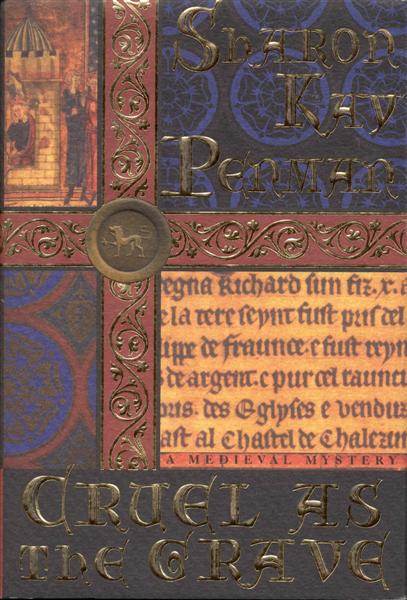 Sharon
Kay
Penman
egna Richard sun fiz. x.
e la tere seynt fust pris del
ippe de fraunce. e fust reyn
de argent. e pur cel raunc
ris. des Eglyses e venduz
ast al Chastel de Chalezun
A MEDIEVAL MYSTERY
CRUEL AS
The GRAVE